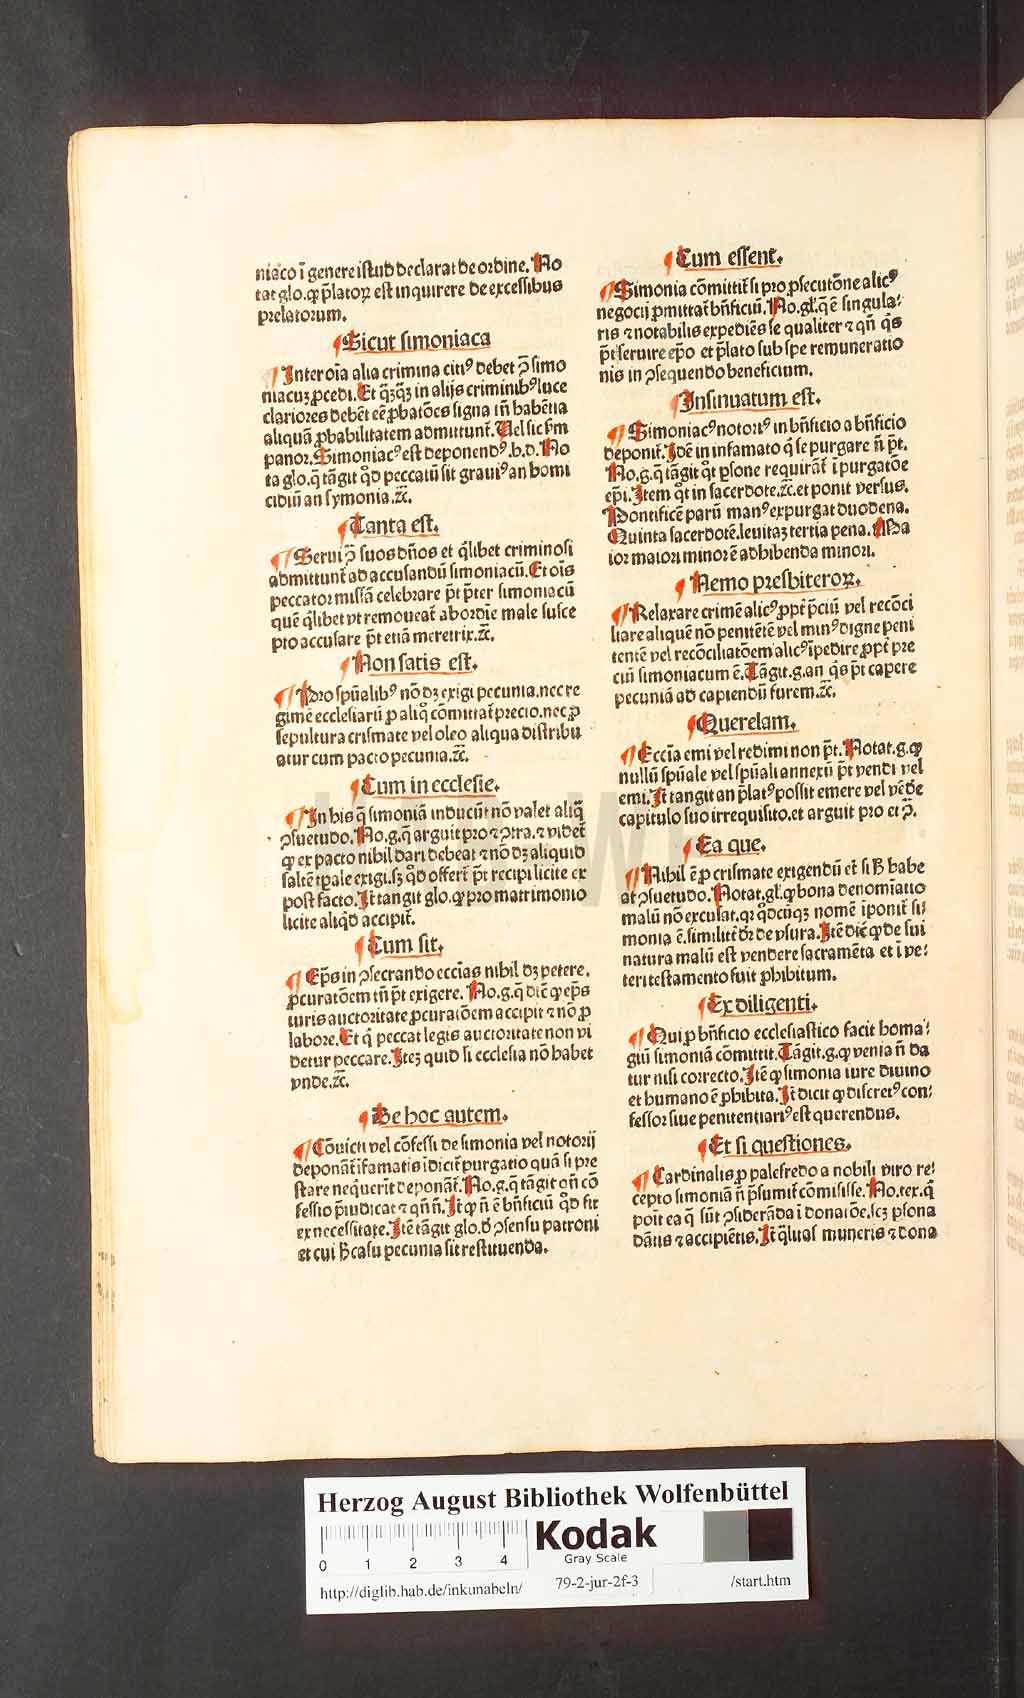 niaco ī genere istud declarat de ordine. No
tat glo. ꝙ p̄latoꝝ est inquirere de excessibus
prelatorum.
¶ Sicut simoniaca
¶ Inter oīa alia crimina citiꝰ debet ꝯ̄ simo
niacuꝫ ꝓcedi. Et qͣꝫqͣꝫ in alijs criminibꝰ luce
clariores debēt eē ꝓbatōes signa tn̄ habētia
aliquā ꝓbabilitatem admittunt᷑. Uel sic ẜm
panor. Simoniacꝰ est deponendꝰ. h. d. No
ta glo. q̄ tāgit qͦd peccatū sit grauiꝰ an homi
cidiū an symonia. ⁊c̄.
¶ Tanta est.
¶ Serui ꝯ̄ suos dn̄os et qͥlibet criminosi
admittunt᷑ ad accusandū simoniacū. Et oīs
peccator missā celebrare p̄t p̄ter simoniacū
quē qͥlibet vt remoueat᷑ ab ordīe male susce
pto accusare p̄t etiā meretrix. ⁊c̄.
¶ Non satis est.
¶ Pro spūalibꝰ nō dꝫ exigi pecunia. nec re
gimē ecclesiarū ꝓ aliqͦ cōmittat᷑ precio. nec ꝓ
sepultura crismate vel oleo aliqua distribu
atur cum pacto pecunia. ⁊c̄.
¶ Cum in ecclesie.
¶ In his q̄ simoniā inducūt nō valet aliq̄
ꝯsuetudo. No. g. q̄ arguit pro ⁊ ꝯtra. ⁊ videt᷑
ꝙ ex pacto nihil dari debeat ⁊ nō dꝫ aliquid
saltē tp̄ale exigi. sꝫ qͦd offert᷑ p̄t recipi licite ex
post facto. It̄ tangit glo. ꝙ pro matrimonio
licite aliqͥd accipit᷑.
¶ Cum sit.
¶ Ep̄s in ꝯsecrando eccīas nihil dꝫ petere.
ꝓcuratōem tn̄ p̄t exigere. No. g. q̄ dic̄ ꝙ ep̄s
iuris auctoritate ꝓcuratōem accipit ⁊ nō ꝓ
labore. Et qͥ peccat legis auctoritate non vi
detur peccare. Iteꝫ quid si ecclesia nō habet
vnde. ⁊c̄.
¶ De hoc autem.
¶ Cōuicti vel cōfessi de simonia vel notorij
deponāt᷑ īfamatis īdicit᷑ purgatio quā si pre
stare neqͥuerīt deponāt᷑. No. g. q̄ tāgit qn̄ cō
fessio p̄iudicat ⁊ qn̄ n̄. It̄ ꝙ n̄ ē bn̄ficiū qͦd fit
ex necessitate. Itē tāgit glo. d̄ ꝯsensu patroni
et cui h̄ casu pecunia sit restituenda.
¶ Cum essent.
¶ Simonia cōmittit᷑ si pro ꝓsecutōne alicꝰ
negocij ꝓmittat᷑ bn̄ficiū. No. gl. q̄ ē singula⸗
ris ⁊ notabilis expediēs se qualiter ⁊ qn̄ qͥs
p̄t seruire ep̄o et p̄lato sub spe remuneratio
nis in ꝯsequendo beneficium.
¶ Insinuatum est.
¶ Simoniacꝰ notoriꝰ in bn̄ficio a bn̄ficio
deponit᷑. Idē in infamato qͥ se purgare n̄ p̄t.
No. g. q̄ tāgit qͦt ꝑsone requirāt᷑ ī purgatōe
ep̄i. Item qͦt in sacerdote. ⁊c̄. et ponit versus.
Pontificē parū manꝰ expurgat duodena.
Quinta sacerdotē. leuitaꝫ tertia pena. Ma
ior maiori minorē adhibenda minori.
¶ Nemo presbiteroꝝ.
¶ Relaxare crimē alicꝰ ꝓpt̄ p̄ciū vel recōci
liare aliquē nō penitētē vel minꝰ digne peni
tentē vel recōciliatōem alicꝰ īpedire ꝓpt̄ pre
ciū simoniacum ē. Tāgit. g. an qͥs p̄t capere
pecuniā ad capiendū furem. ⁊c̄.
¶ Querelam.
¶ Eccīa emi vel redimi non p̄t. Notat. g. ꝙ
nullū spūale vel spūali annexū p̄t vendi vel
emi. It̄ tangit an p̄latꝰ possit emere vel vēde
capitulo suo irrequisito. et arguit pro et ꝯ̄.
¶ Ea que.
¶ Nihil ē ꝓ crismate exigendū et᷑ si h̄ habe
at ꝯsuetudo. Notat. gl. ꝙ bona denomīatio
malū nō excusat. qꝛ qͦdcūqꝫ nomē īponit᷑ si⸗
monia ē. similit᷑ dꝛ de vsura. Itē dic̄ ꝙ de sui
natura malū est vendere sacramēta et ī ve⸗
teri testamento fuit ꝓhibitum.
¶ Ex diligenti.
¶ Qui ꝓ bn̄ficio ecclesiastico facit homa⸗
giū simoniā cōmittit. Tāgit. g. ꝙ venia n̄ da
tur nisi correcto. Itē ꝙ simonia iure diuino
et humano ē ꝓhibita. It̄ dicit ꝙ discretꝰ con⸗
fessor siue penitentiariꝰ est querendus.
¶ Et si questiones.
¶ Cardinalis ꝓ palefredo a nobili viro re⸗
cepto simoniā n̄ p̄sumit᷑ cōmisisse. No. tex. q̄
poīt ea q̄ sūt ꝯsiderāda ī donatōe. scꝫ ꝑsona
dātis ⁊ accipiētis. It̄ qͣlitas muneris ⁊ dona
HAB-WF
Herzog August Bibliothek Wolfenbüttel
0 1 2 3 4
Kodak
Gray Scale
http://diglib.hab.de/inkunabeln/ 79-2-jur-2f-3 /start.htm